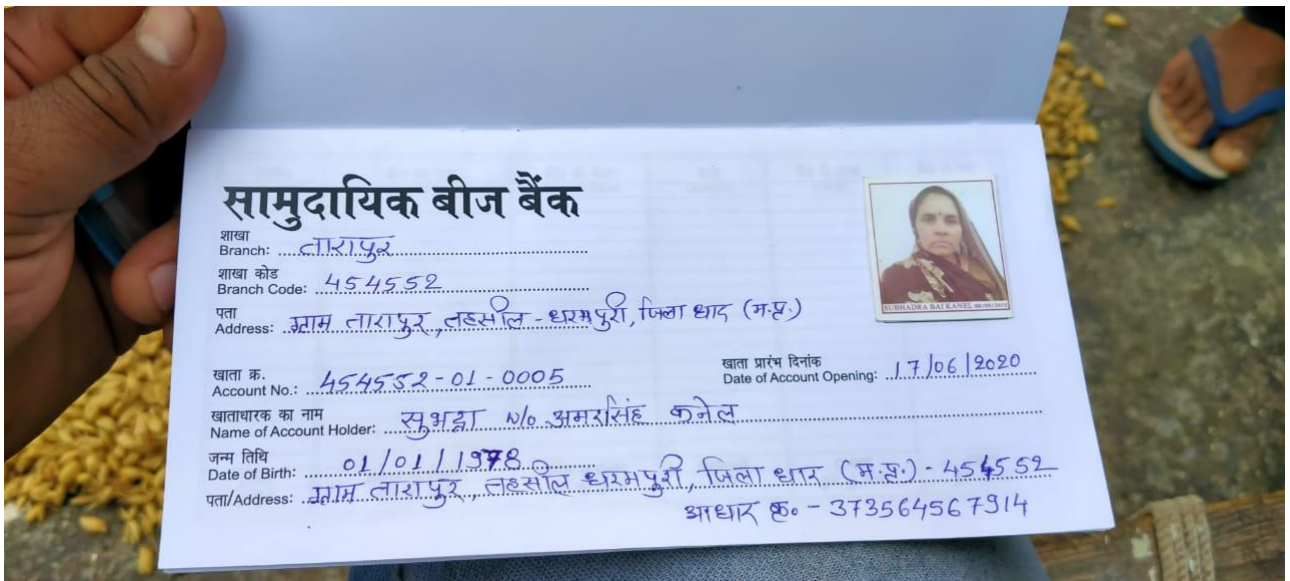 सामुदायिक बीज बैंक
शाखा
Branch: तारापुर
शाखा कोड
Branch Code: 454552
पता
Address: ग्राम तारापुर, तहसील - धरमपुरी, जिला धार (म.प्र.)
खाता क्र.
Account No.: 454552-01-0005
खाता प्रारंभ दिनांक
Date of Account Opening: 17/06/2020
खाताधारक का नाम
Name of Account Holder: सुभद्रा W/o अमरसिंह कनेल
जन्म तिथि
Date of Birth: 01/01/1978
पता/Address: ग्राम तारापुर, तहसील धरमपुरी, जिला धार (म.प्र.) - 454552
आधार क्र० - 373564567914
SUBHADRA BAI KANEL